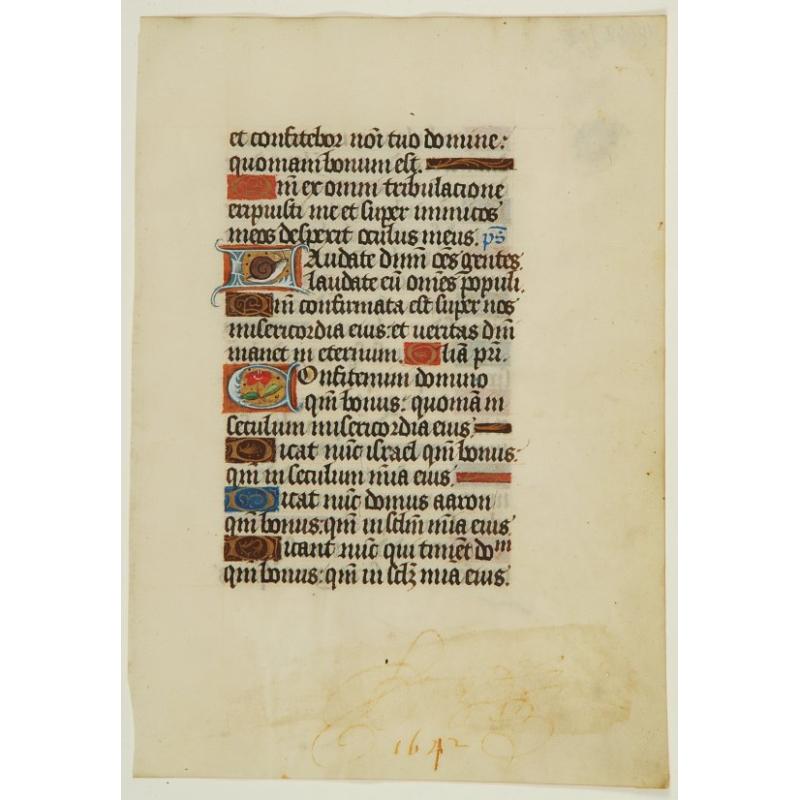 et confitebor noı̄ tuo domine:
quoniam bonum est.
Qm̄ ex omni tribulacione
eripuisti me et super inimicos
meos despexit oculus meus. ps̄
Laudate dn̄m om̄s gentes.
laudate eū omēs populi.
Qm̄ confirmata est super nos
misericordia eius: et veritas dn̄i
manet in eternum. Gl̄ia pr̄i.
Confitemini domino
qm̄ bonus: quoniā in
seculum misericordia eius
Dicat nūc israel qm̄ bonus:
qm̄ in seculum mīa eius.
Dicat nūc domus aaron
qm̄ bonus: qm̄ in sclm̄ mīa eius
Dicant nūc qui timēt dom
qm̄ bonus: qm̄ in sclꝫ mīa eius.
1642